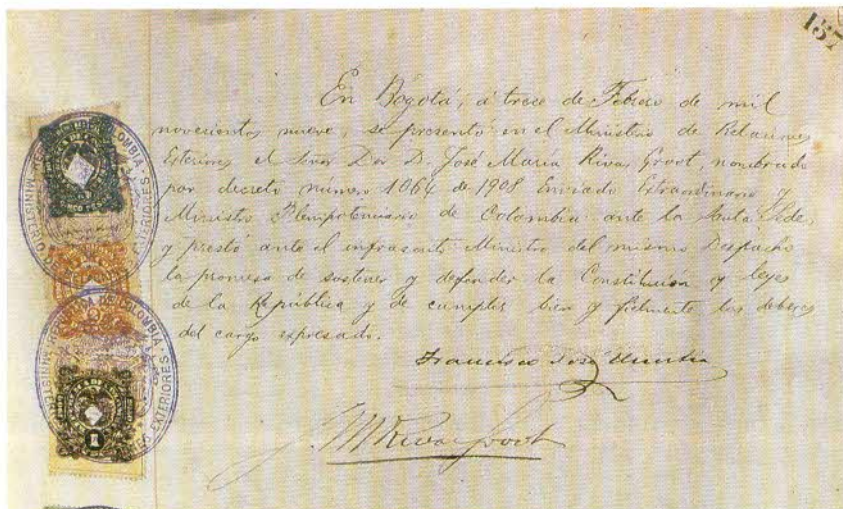 157
En Bogotá, á trece de Febrero de mil
novecientos nueve, se presentó en el Ministerio de Relaciones
Exteriores el Señor Dor D. José María Rivas Groot, nombrado
por decreto número 1064 de 1908 Enviado Extraordinario y
Ministro Plenipotenciario de Colombia ante la Santa Sede,
y prestó ante el infrascrito Ministro del mismo Despacho
la promesa de sostener y defender la Constitución y leyes
de la República y de cumplir bien y fielmente los deberes
del cargo expresado.
Francisco José Urrutia
J. M. Rivas Groot
REPUBLICA DE COLOMBIA · MINISTERIO
EXTERIORES
REPUBLICA DE COLOMBIA · MINISTERIO
DE
EXTERIORES
1